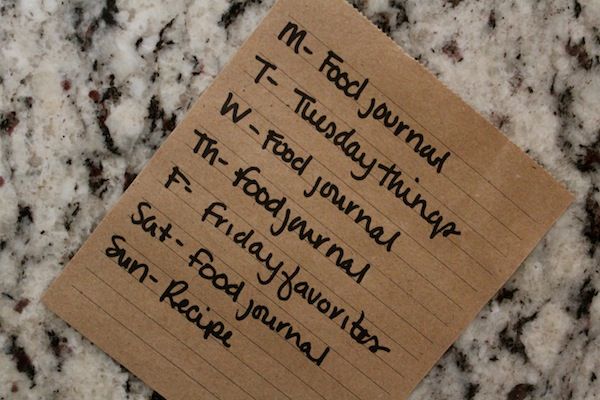 M- Food journal
T- Tuesday things
W- Food journal
Th- Food journal
F- Friday favorites
Sat- Food journal
Sun- Recipe